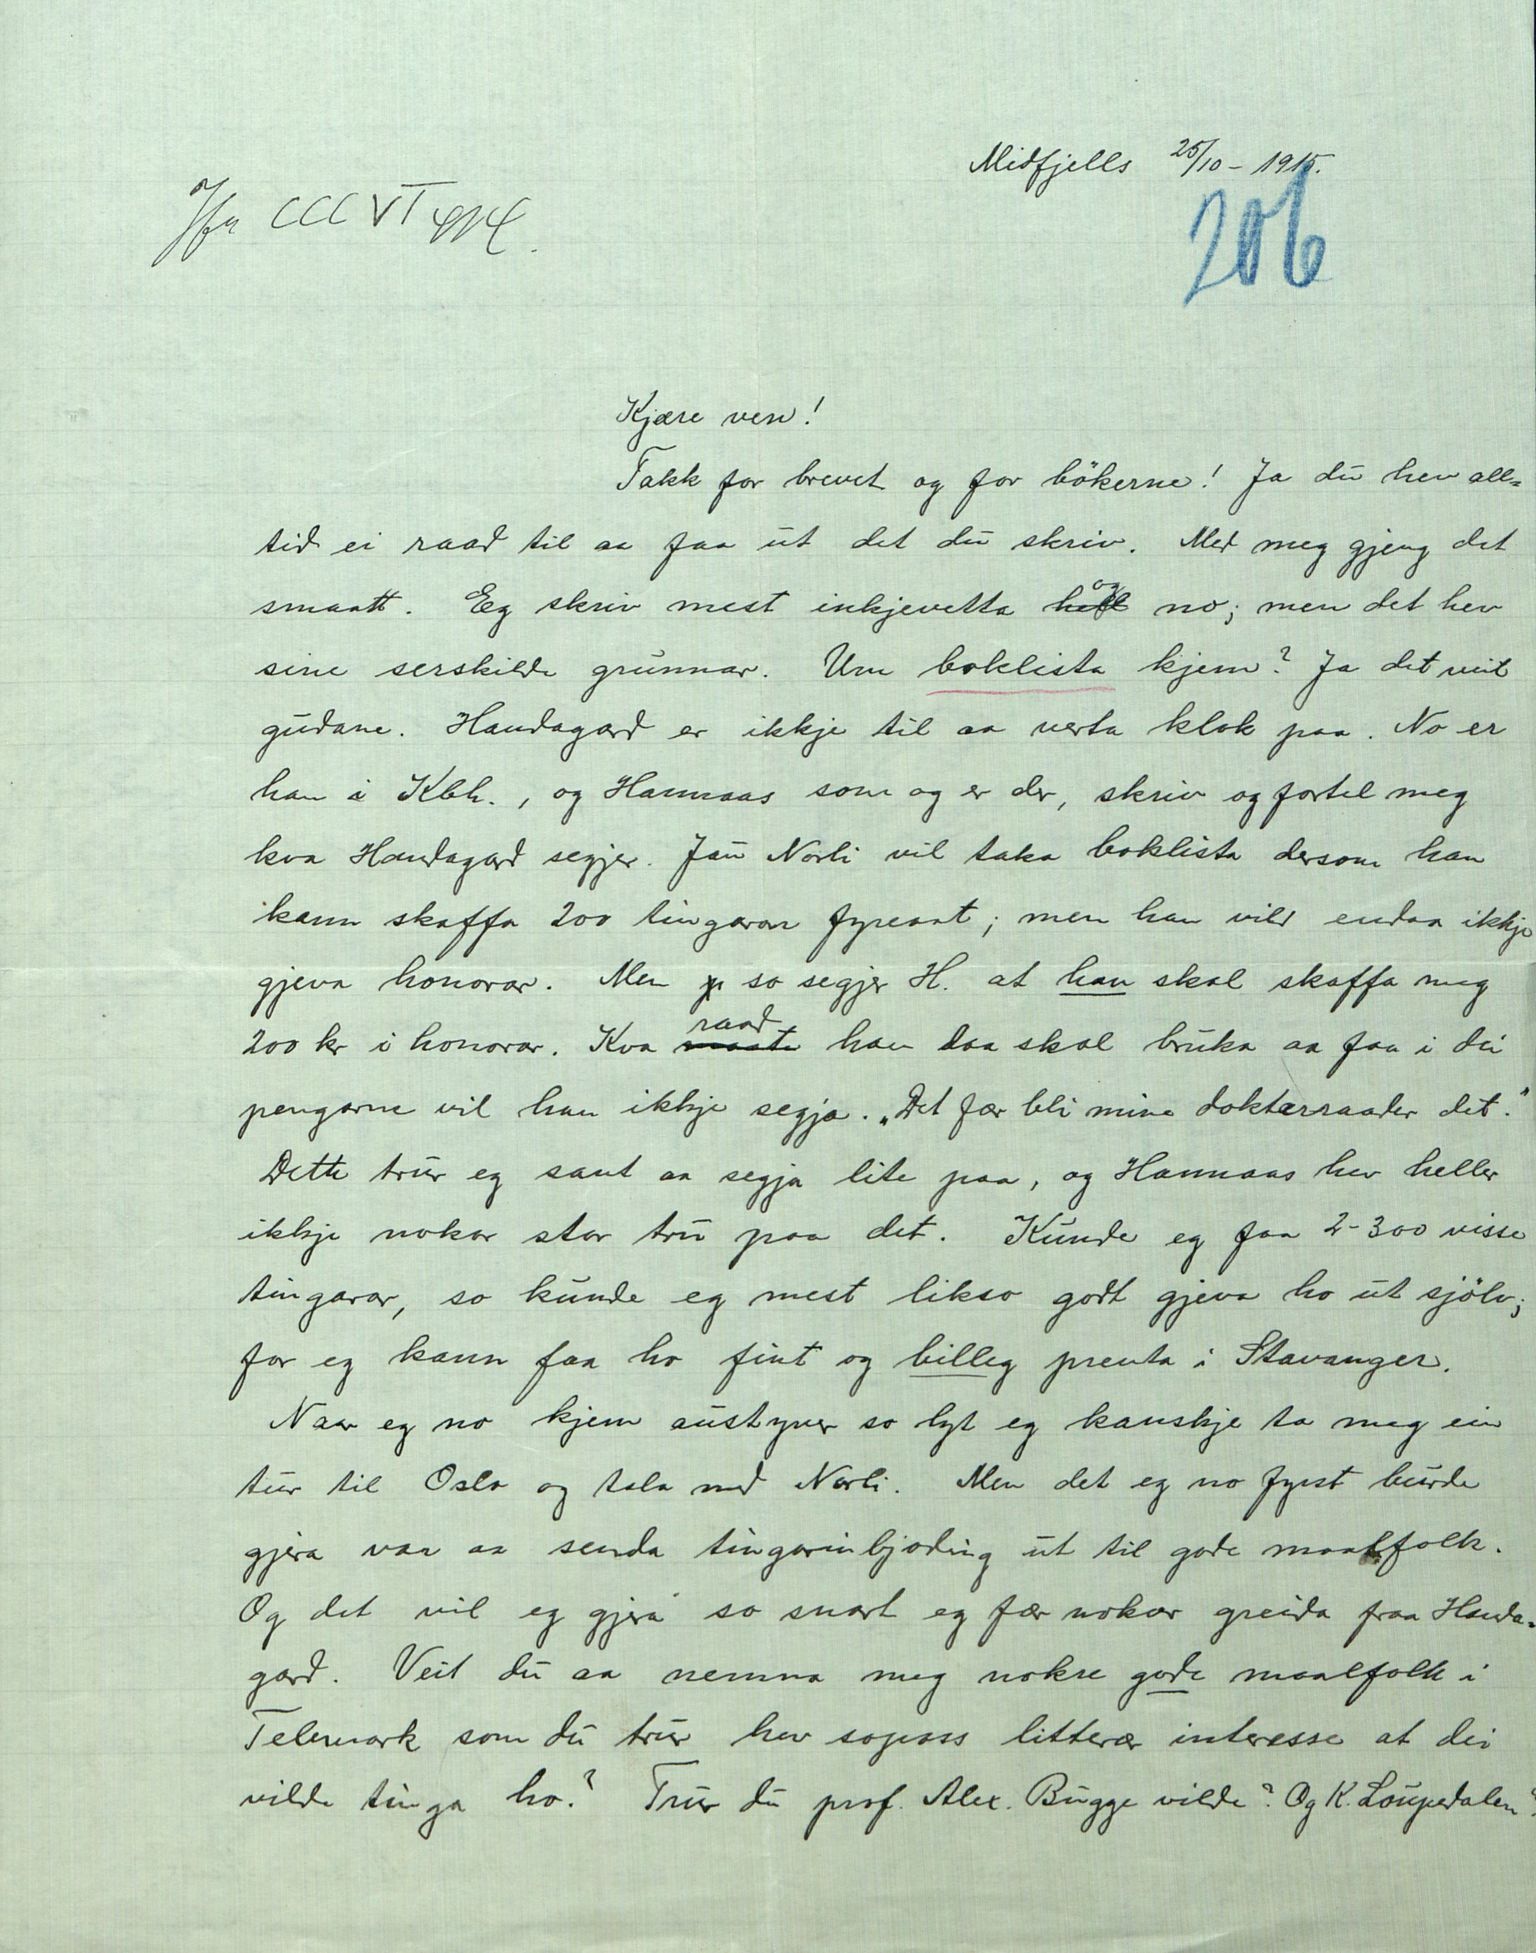 Midfjells 25/10 – 1915.
206
Kjære ven!
Takk for brevet og for bökerne! Ja du hev all=
tid ei raad til aa faa ut det du skriv. Med meg gjeng det
smaatt. Eg skriv mest inkjevetta og no; men det hev
sine serskilde grunnar. Um boklista kjem? Ja det veit
gudane. Handagard er ikkje til aa verta klok paa. No er
han i Kbh., og Hannaas som og er der, skriv og fortel meg
kva Handagard segjer. Jau Norli vil taka boklista dersom han
kann skaffa 200 tingarar fyreaat; men han vild endaa ikkje
gjeva honorar. Men so segjer H. at han skal skaffa meg
200 kr i honorar. Kva raad han daa skal bruka aa faa i dei
pengarne vil han ikkje segja. „Det fær bli mine dokterraader det."
Dette trur eg sant aa segja lite paa, og Hannaas hev heller
ikkje nokor stor tru paa det. Kunde eg faa 2-300 visse
tingarar, so kunde eg mest likso godt gjeva ho ut sjölv;
for eg kann faa ho fint og billeg prenta i Stavanger.
Naar eg no kjem austyver so lyt eg kanskje ta meg ein
tur til Oslo og tala med Norli. Men det eg no fyrst burde
gjera var aa senda tingarinbjoding ut til gode maalfolk.
Og det vil eg gjera so snart eg fær nokor greida fraa Handa-
gard. Veit du aa nemna meg nokre gode maalfolk i
Telemark som du trur hev sopass litterær interesse at dei
vilde tinga ho? Trur du prof. Alex. Bugge vilde? Og K. Loupedalen?